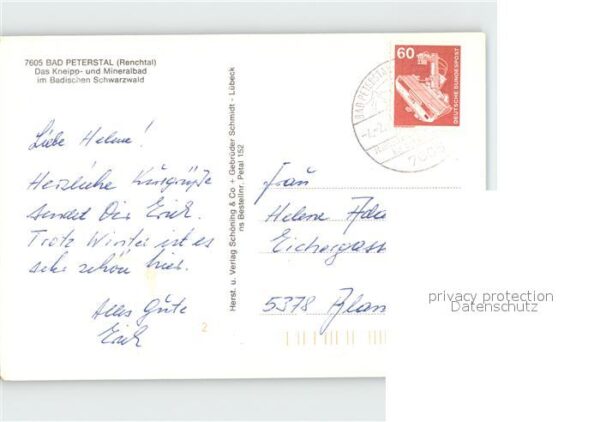 7605 BAD PETERSTAL (Renchtal)
Das Kneipp- und Mineralbad
im Badischen Schwarzwald
Liebe Helene!
Herzliche Kurgrüße
sendet Dir Erich.
Trotz Winter ist es
sehr schön hier.
Alles Gute
Erich
2
Herst. u. Verlag Schöning & Co + Gebrüder Schmidt - Lübeck
ns Bestellnr. Petal 152
60
DEUTSCHE BUNDESPOST
BAD PETERSTAL
7605
Frau
Helene
Eichergass
5378
privacy protection
Datenschutz